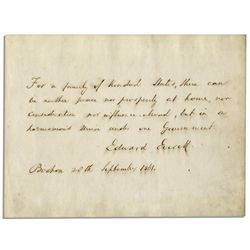 For a family of Kindred States, there can
be neither peace nor prosperity at home, nor
consideration nor influence abroad, but in a
harmonious Union under one Government.
Edward Everett
Boston 28th September 1861.